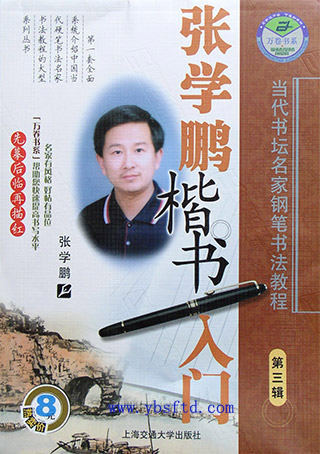 第一套全面
系统介绍中国当
代硬笔书法名家
书法教程的大型
系列丛书
名家有风格 好帖有品位
「万卷书系」帮助您快速提高书写水平
先摹后临再描红
张学鹏
张学鹏
楷书
入门
万卷书系
当代书坛名家钢笔书法教程
第三辑
8元
www.ybsftd.com
上海交通大学出版社